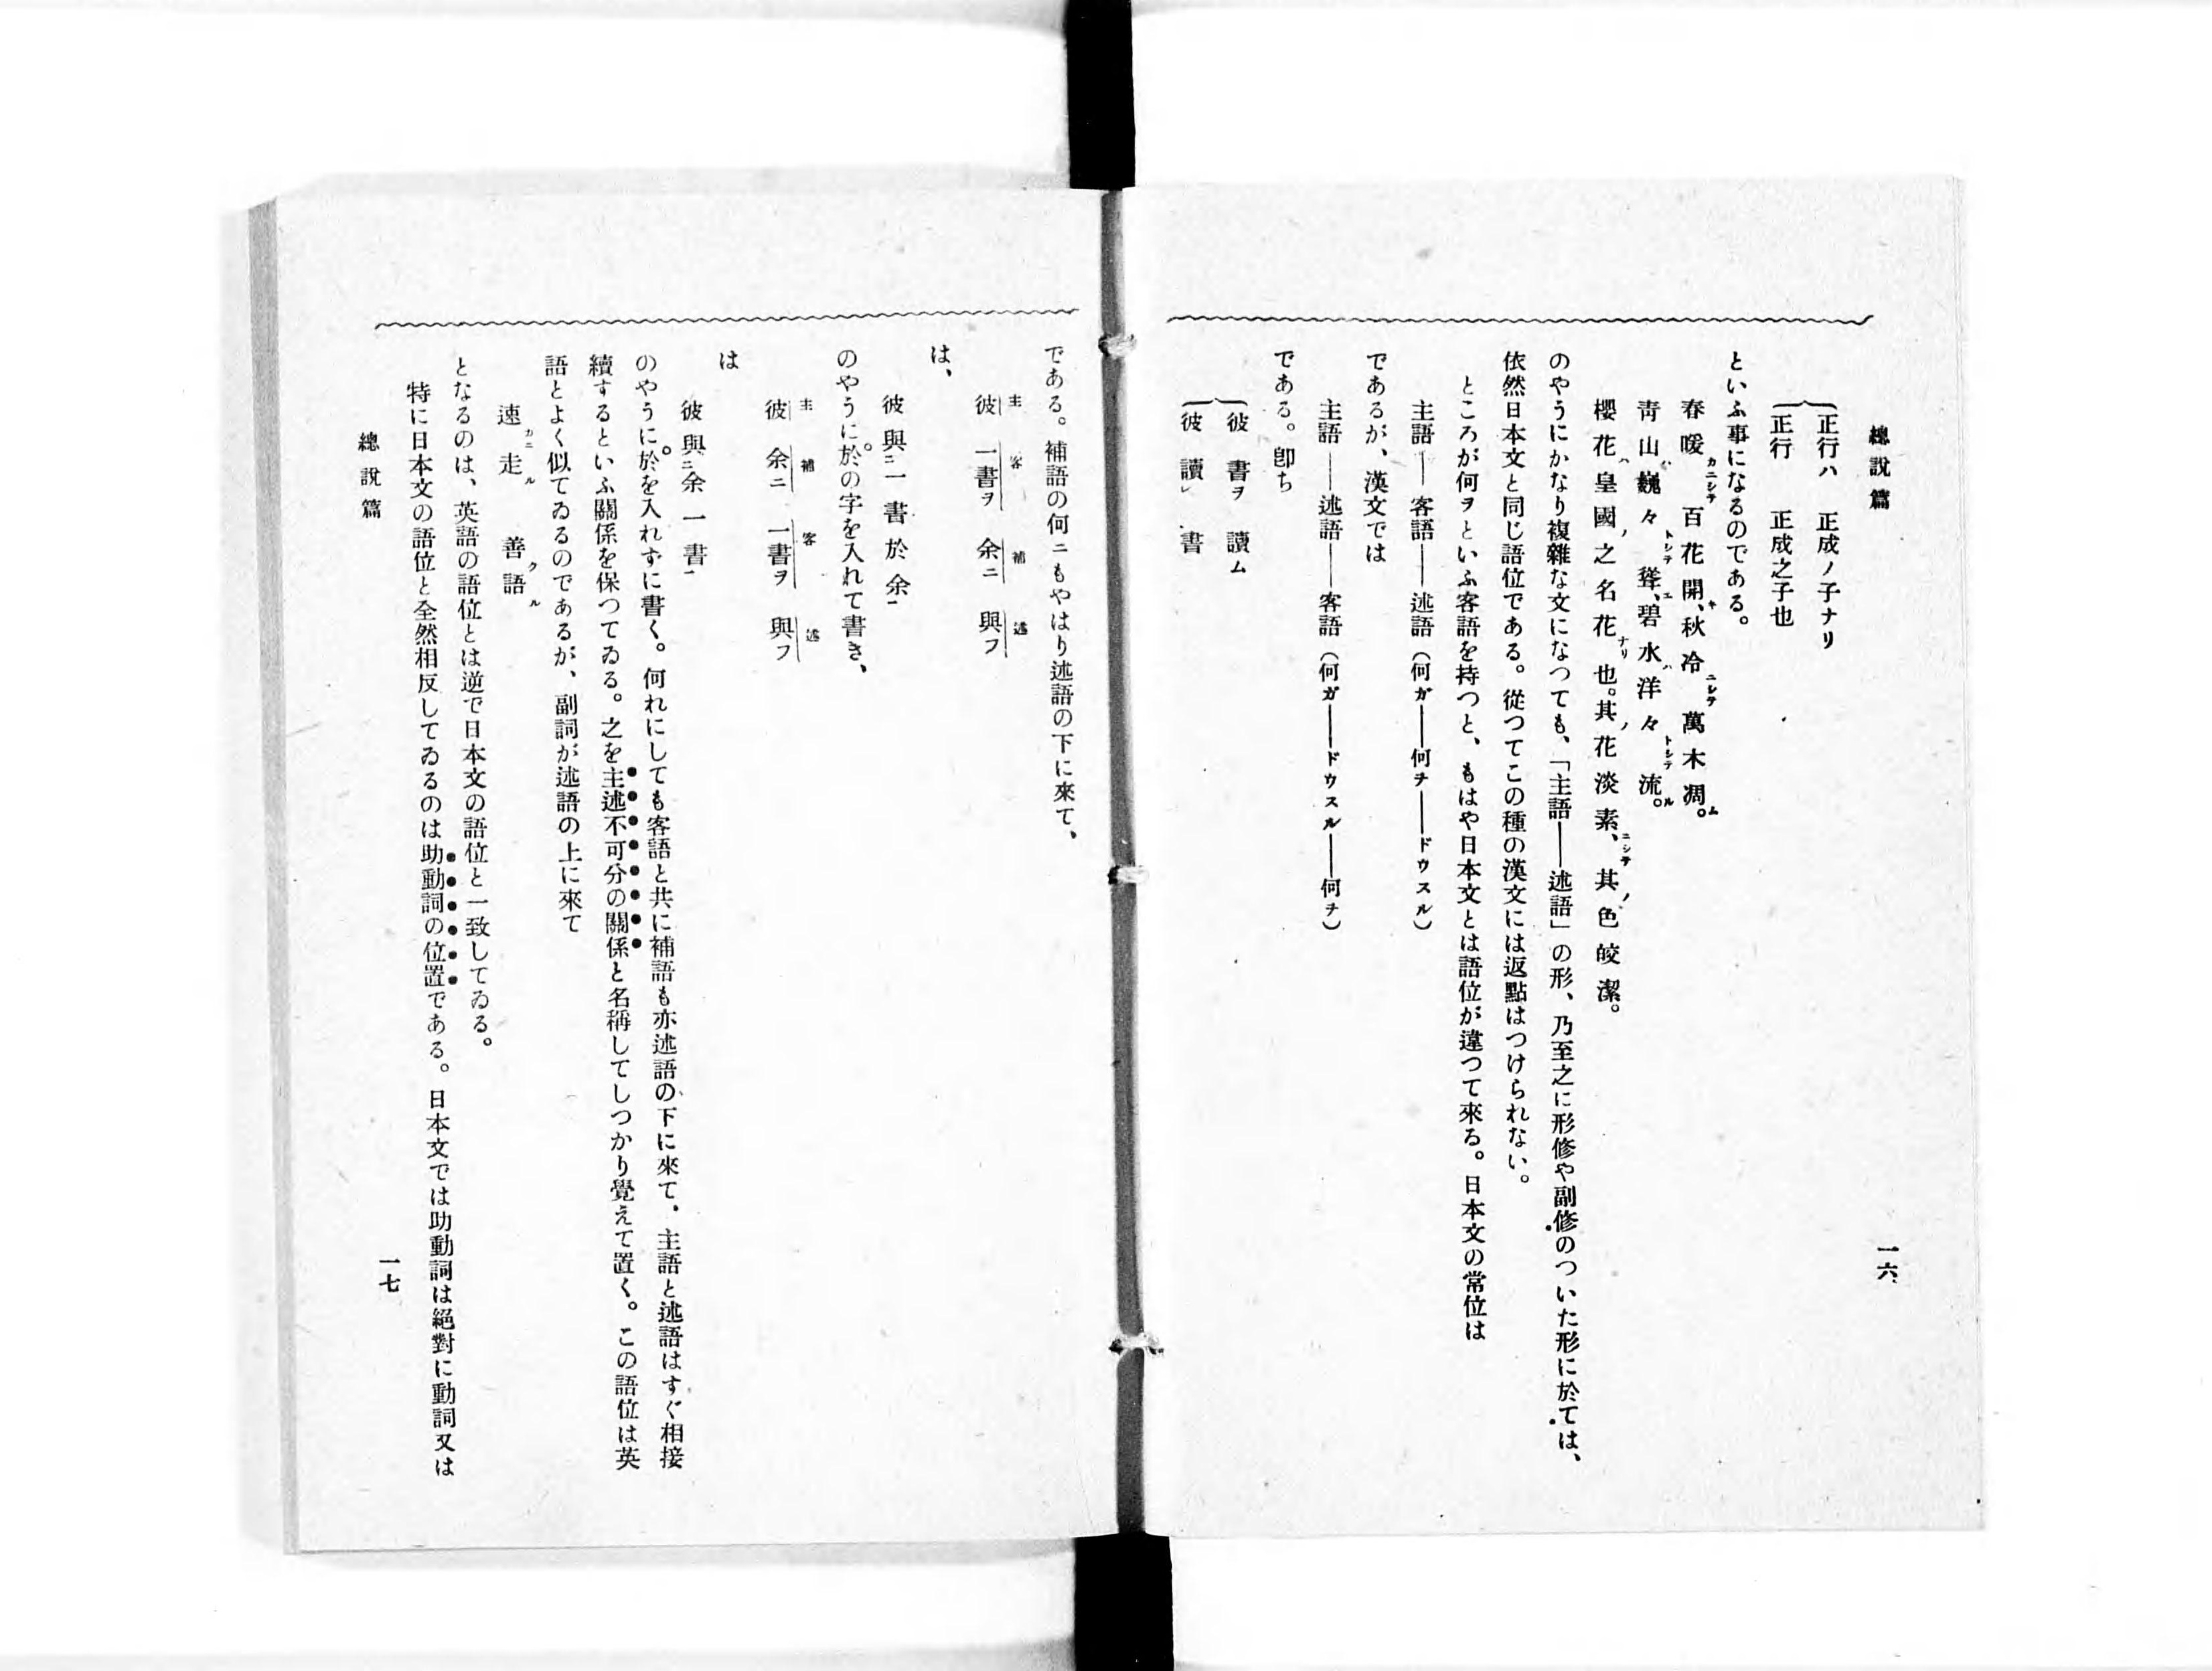 總說篇
一六
正行ハ 正成ノ子ナリ
正行 正成之子也
といふ事になるのである。
春暖カニシテ百花開キ、秋冷ニシテ萬木凋ム。
靑山ハ巍々トシテ聳エ、碧水ハ洋々トシテ流ル。
櫻花ハ皇國ノ之名花ナリ也。其ノ花淡素ニシテ、其ノ色皎潔。
のやうにかなり複雜な文になつても、「主語――述語」の形、乃至之に形修や副修のついた形に於ては、
依然日本文と同じ語位である。從つてこの種の漢文には返點はつけられない。
ところが何ヲといふ客語を持つと、もはや日本文とは語位が違つて來る。日本文の常位は
主語――客語――述語(何ガ――何ヲ――ドウスル)
であるが、漢文では
主語――述語――客語(何ガ――ドウスル――何ヲ)
である。卽ち
彼 書ヲ 讀ム
彼 讀レ 書
である。補語の何ニもやはり述語の下に來て、
主彼 客一書ヲ 補余ニ 述與フ
は、
彼與二一書於余一
のやうに於の字を入れて書き、
主彼 補余ニ 客一書ヲ 述與フ
は
彼與二余一書一
のやうに於を入れずに書く。何れにしても客語と共に補語も亦述語の下に來て、主語と述語はすぐ相接
續するといふ關係を保つてゐる。之を主述不可分の關係と名稱してしつかり覺えて置く。この語位は英
語とよく似てゐるのであるが、副詞が述語の上に來て
速カニ走ル 善ク語ル
となるのは、英語の語位とは逆で日本文の語位と一致してゐる。
特に日本文の語位と全然相反してゐるのは助動詞の位置である。日本文では助動詞は絕對に動詞又は
總說篇
一七